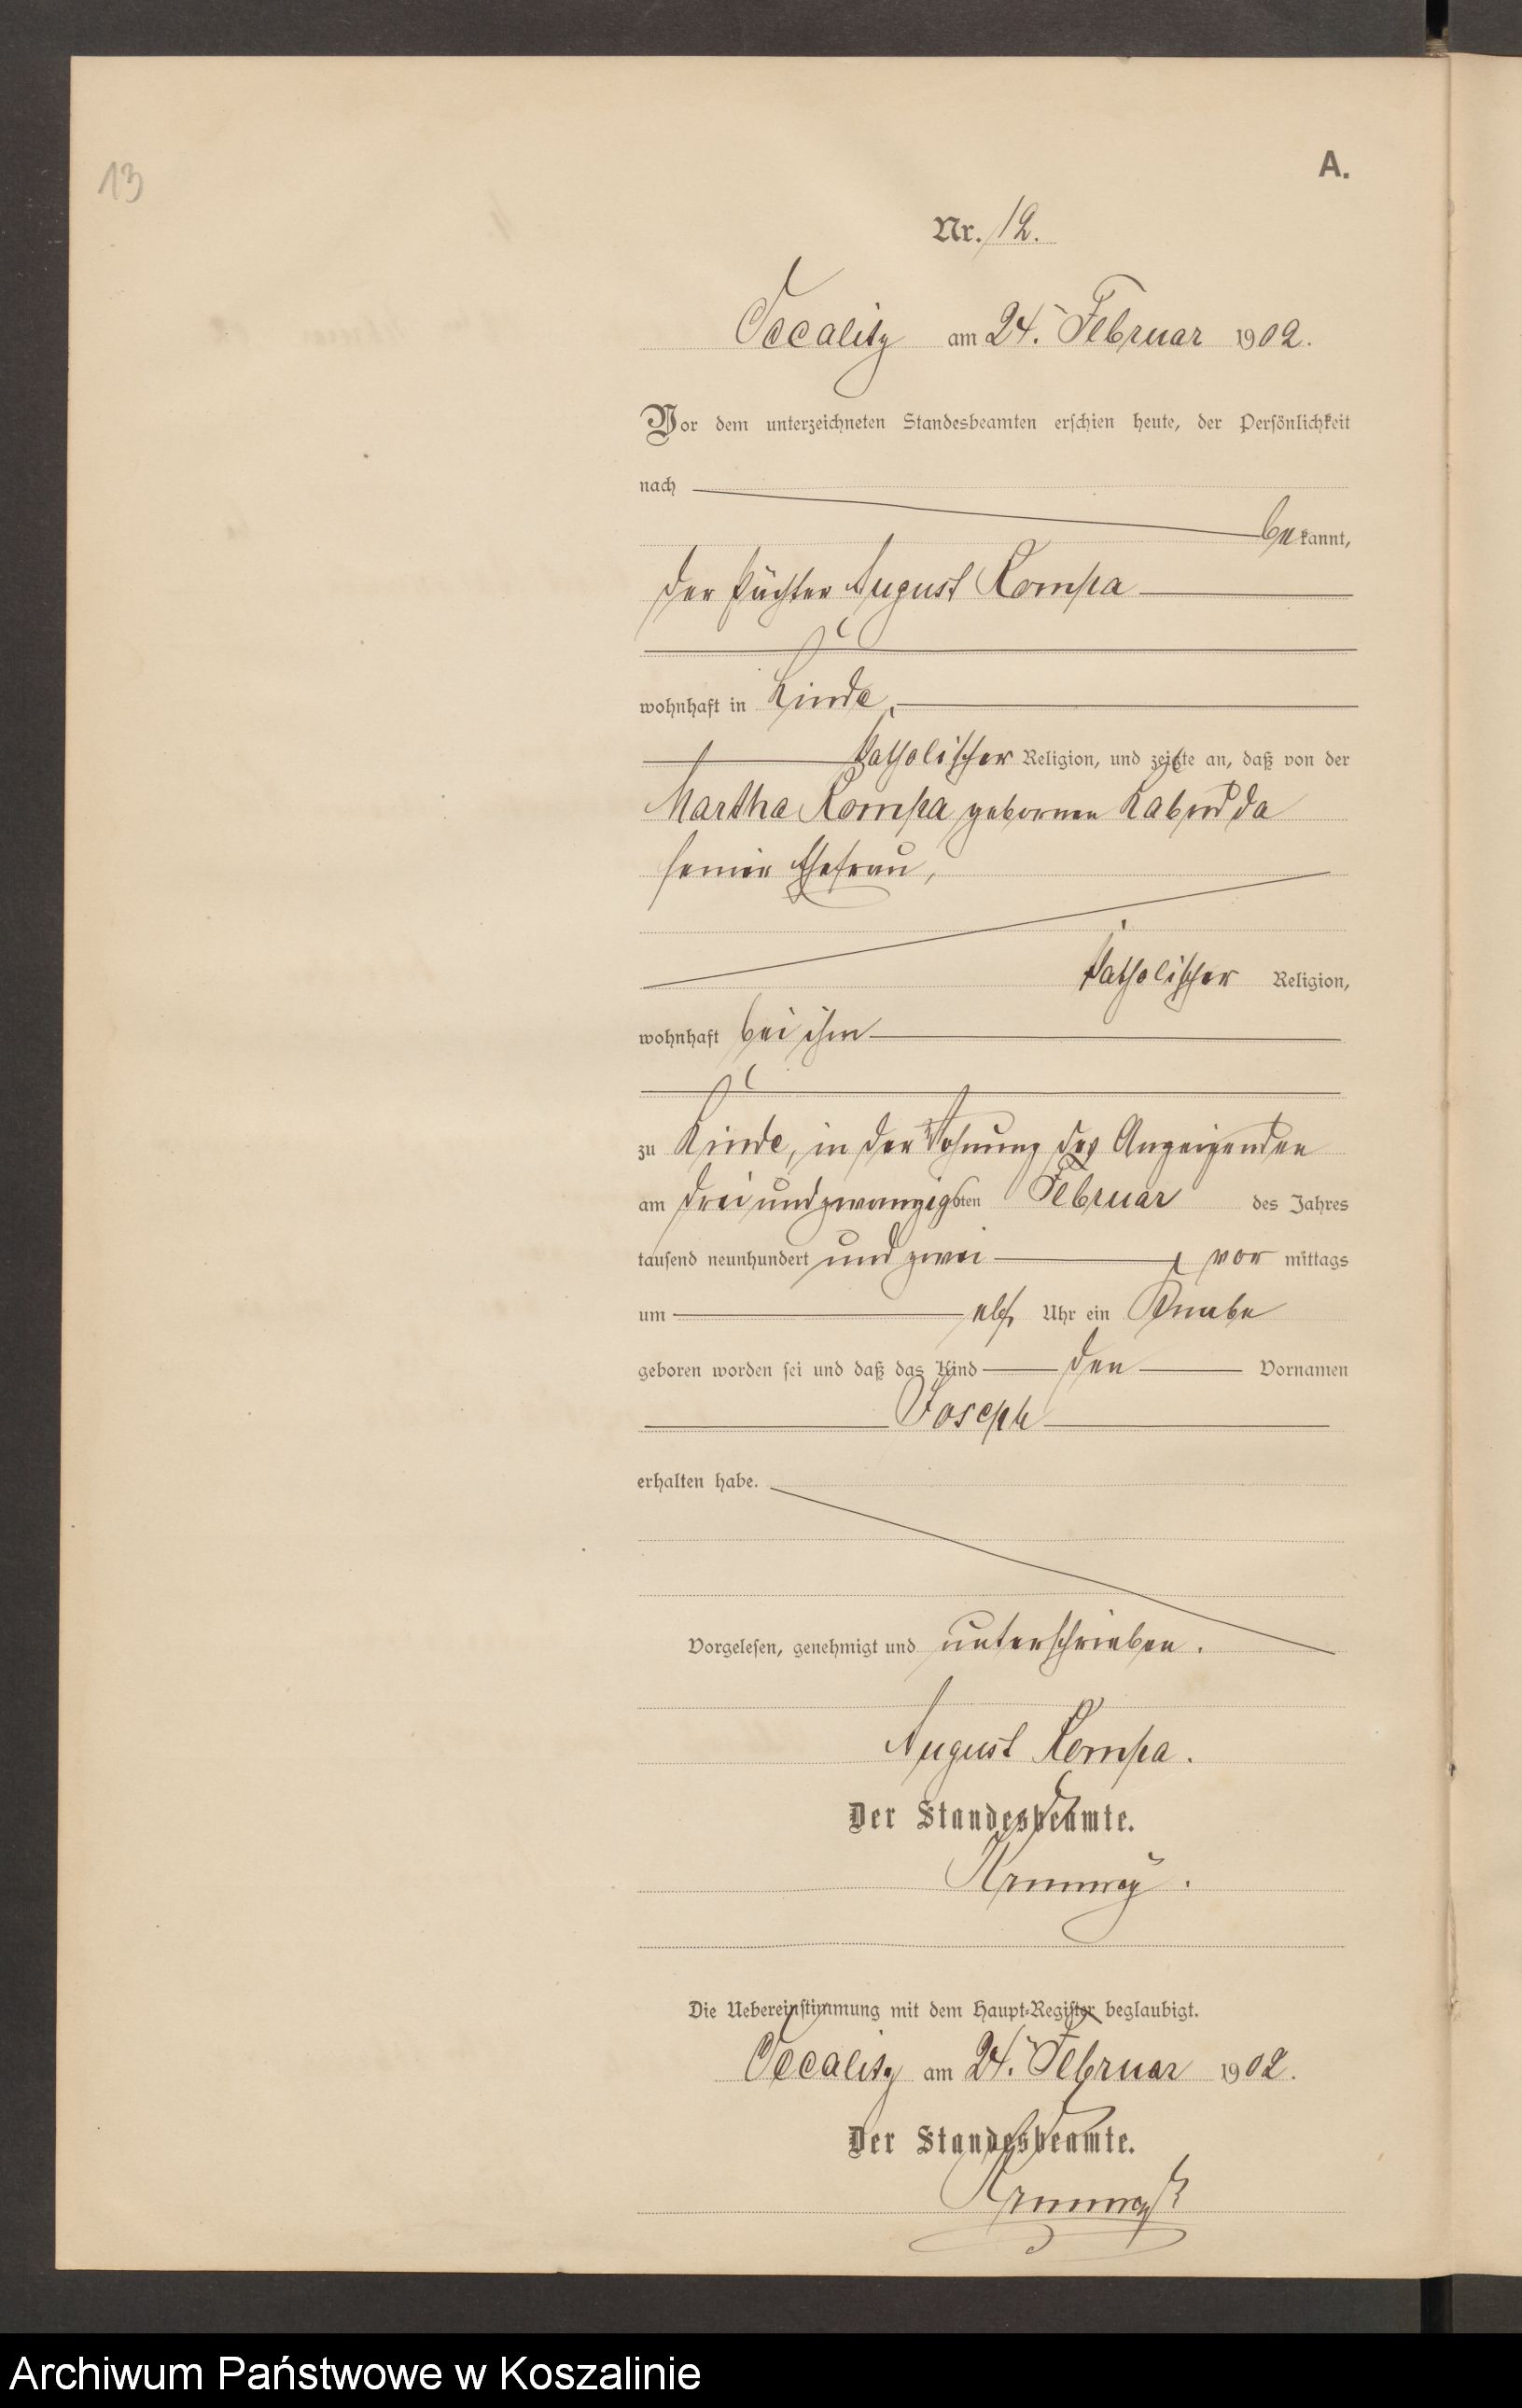 13
A.
Nr. 12.
Occalitz am 24. Februar 1902.
Vor dem unterzeichneten Standesbeamten erschien heute, der Persönlichkeit
nach
bekannt,
der Pächter August Kompa
wohnhaft in Linde,
katholischer Religion, und zeigte an, daß von der
Martha Kompa gebornen
seiner Ehefrau,
katholischer Religion,
wohnhaft bei ihm
zu Linde, in der Wohnung des Anzeigenden
am drei und zwanzigsten Februar des Jahres
tausend neunhundert und zwei, vor mittags
um elf Uhr ein Knabe
geboren worden sei und daß das Kind den Vornamen
Joseph
erhalten habe.
Vorgelesen, genehmigt und unterschrieben.
August Kompa.
Der Standesbeamte.
Die Uebereinstimmung mit dem Haupt-Register beglaubigt.
Occalitz am 24. Februar 1902.
Der Standesbeamte.
Archiwum Państwowe w Koszalinie